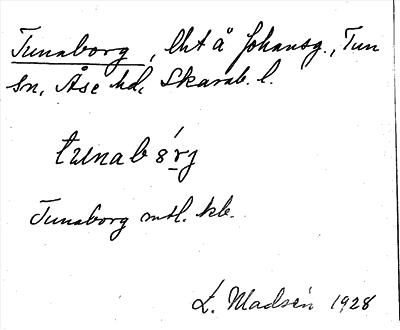 Tunaborg, lht å Johansg., Tun
sn, Åse hd, Skarab. l.
tunabórj
Tunaborg mtl. kb.
L. Madsén 1928